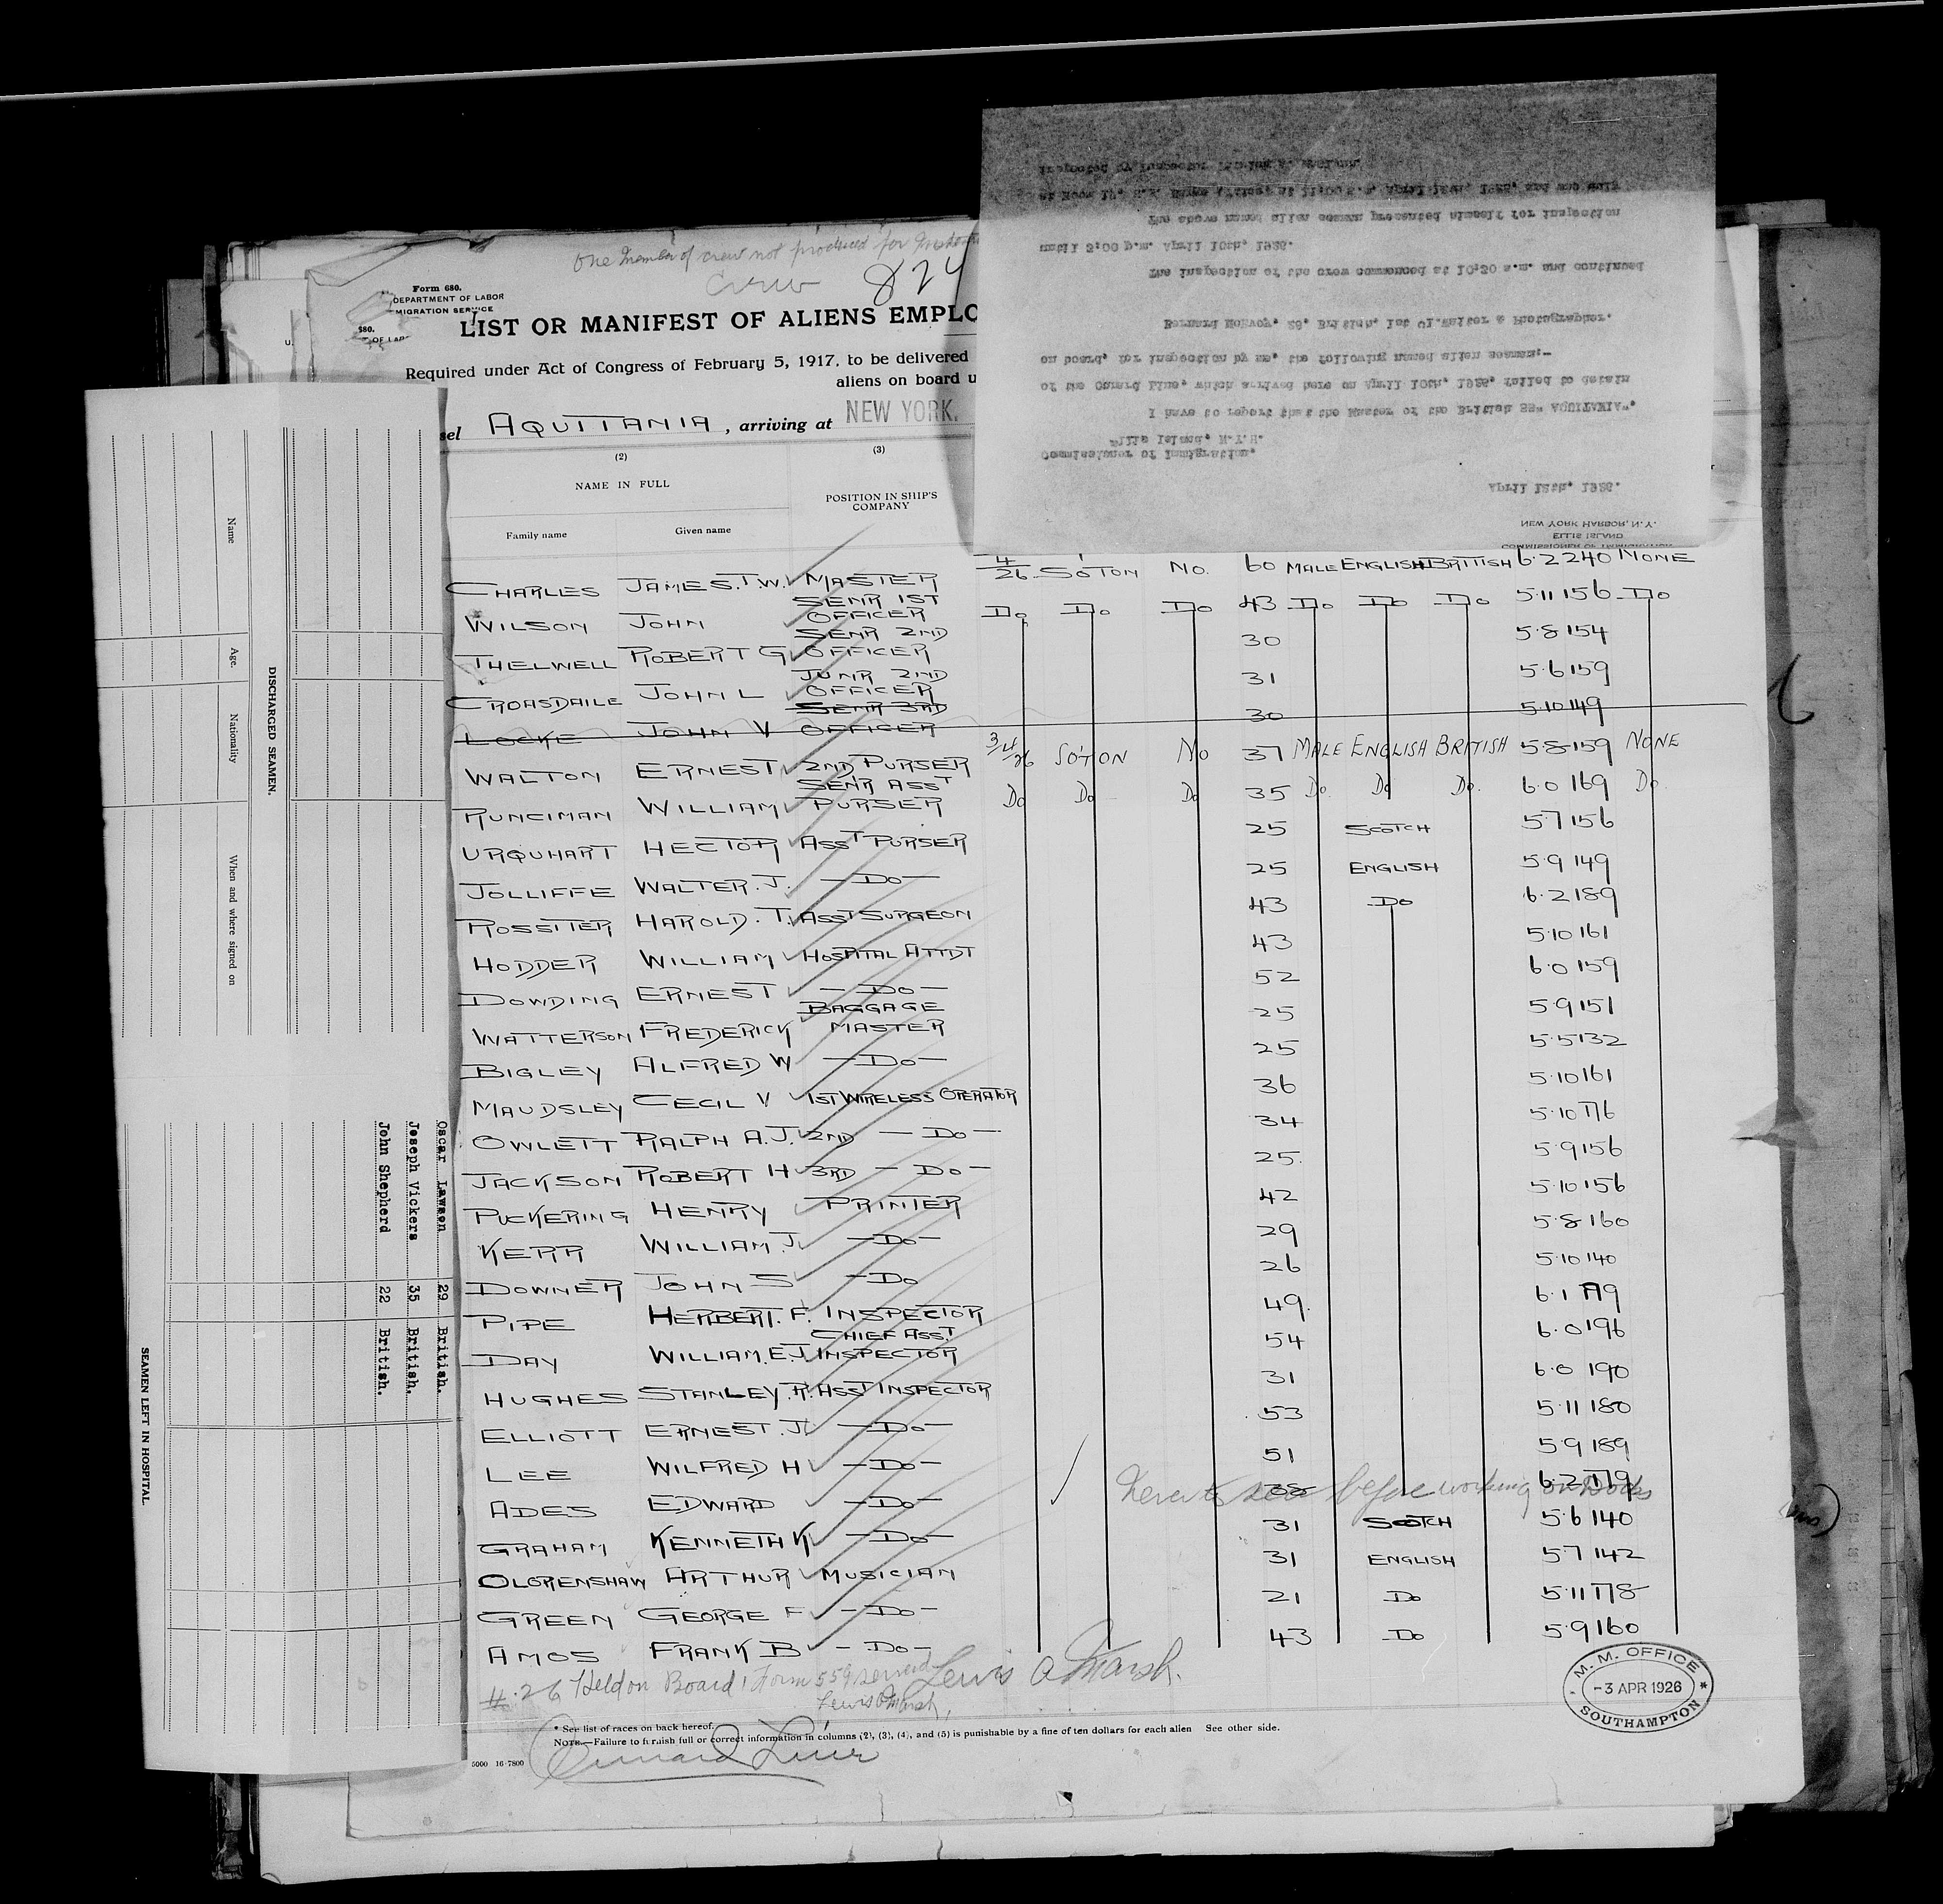 One member of crew not produced for
Crew
824
Form 680.
DEPARTMENT OF LABOR
MIGRATION SERVICE
LIST OR MANIFEST OF ALIENS EMPLO
Required under Act of Congress of February 5, 1917, to be delivered
aliens on board u
sel AQUITANIA, arriving at NEW YORK.
(2) (3)
NAME IN FULL
POSITION IN SHIP'S COMPANY
Family name Given name
CHARLES JAMES.T.W. MASTER 4/26 SOTON NO. 60 MALE ENGLISH BRITISH 6·2 240 NONE
WILSON JOHN SENR 1ST OFFICER Do Do Do 43 Do Do Do 5·11 156 Do
THELWELL ROBERT G SENR 2ND OFFICER 30 5·8 154
CROASDAILE JOHN L JUNR 2ND OFFICER 31 5·6 159
LOCKE JOHN V SENR 3RD OFFICER 30 5·10 149
WALTON ERNEST 2ND PURSER 3/4/26 SOTON No 37 MALE ENGLISH BRITISH 5·8 159 NONE
RUNCIMAN WILLIAM SENR ASST PURSER Do Do Do 35 Do. Do Do. 6·0 169 Do
URQUHART HECTOR ASST PURSER 25 SCOTCH 5·7 156
JOLLIFFE WALTER.J. —DO— 25 ENGLISH 5·9 149
ROSSITER HAROLD.T. ASST SURGEON 43 Do 6·2 189
HODDER WILLIAM HOSPITAL ATTDT 43 5·10 161
DOWDING ERNEST —DO— 52 6·0 159
WATTERSON FREDERICK BAGGAGE MASTER 25 5·9 151
BIGLEY ALFRED W —DO— 25 5·5 132
MAUDSLEY CECIL V 1ST WIRELESS OPERATOR 36 5·10 161
OWLETT RALPH A.J. 2ND —DO— 34 5·10 176
JACKSON ROBERT H 3RD —DO— 25. 5·9 156
PUCKERING HENRY PRINTER 42 5·10 156
KERR WILLIAM J. —DO— 29 5·8 160
DOWNER JOHN S —DO 26 5·10 140
PIPE HERBERT. F. INSPECTOR 49. 6·1 179
DAY WILLIAM.E.J CHIEF ASST INSPECTOR 54 6·0 196
HUGHES STANLEY.R. ASST INSPECTOR 31 6·0 190
ELLIOTT ERNEST.J. —DO— 53 5·11 180
LEE WILFRED H —DO— 51 5·9 189
ADES EDWARD —DO— 38 6·2 179
before working on Docks
GRAHAM KENNETH K —DO— 31 SCOTCH 5·6 140
OLGRENSHAW ARTHUR MUSICIAN 31 ENGLISH 5·7 142
GREEN GEORGE F —DO— 21 Do 5·11 178
AMOS FRANK B —DO— 43 Do 5·9 160
#·26 Held on Board, Form 559 served
Lewis A Marsh.
Lewis A Marsh.
* See list of races on back hereof.
NOTE.—Failure to furnish full or correct information in columns (2), (3), (4), and (5) is punishable by a fine of ten dollars for each alien See other side.
5000 16-7800
Cunard Line
M. M. OFFICE
-3 APR 1926
SOUTHAMPTON
COMMISSIONER OF IMMIGRATION
ELLIS ISLAND
NEW YORK HARBOR, N.Y.
April 12th, 1926.
Commissioner of Immigration,
Ellis Island, N.Y.H.
I have to report that the Master of the British SS" AQUITANIA",
of the Cunard Line, which arrived here on April 10th, 1926, failed to detain
on board, for inspection by me, the following named alien seaman:-
Bernard McEvoy, 29, British, 1st Cl.Waiter & Photographer.
The inspection of the crew commenced at 10;30 a.m. and continued
until 3;00 p.m. April 10th, 1926.
The above named alien seaman presented himself for inspection
April 12th, 1926, and was duly
inspected by Inspector
DISCHARGED SEAMEN.
Name Age. Nationality When and where signed on
SEAMEN LEFT IN HOSPITAL
Oscar Lawson 29 British.
Joseph Vickers 35 British.
John Shepherd 22 British.